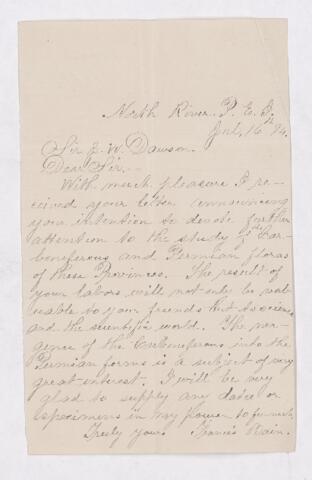 North River, P. E. I.
Jul. 16th 94.
Sir J. W. Dawson.
Dear Sir,--
With much pleasure I re-
ceived your letter announcing
your intention to devote further
attention to the study of the Car-
boniferous and Permian floras
of these Provinces. The result of
your labors will not only be val-
uable to your friends but to science
and the scientific world. The mer-
gence of the Carboniferous into the
Permian forms is a subject of very
great interest. I will be very
glad to supply any data or
specimens in my power to furnish.
Truly yours Francis Bain.